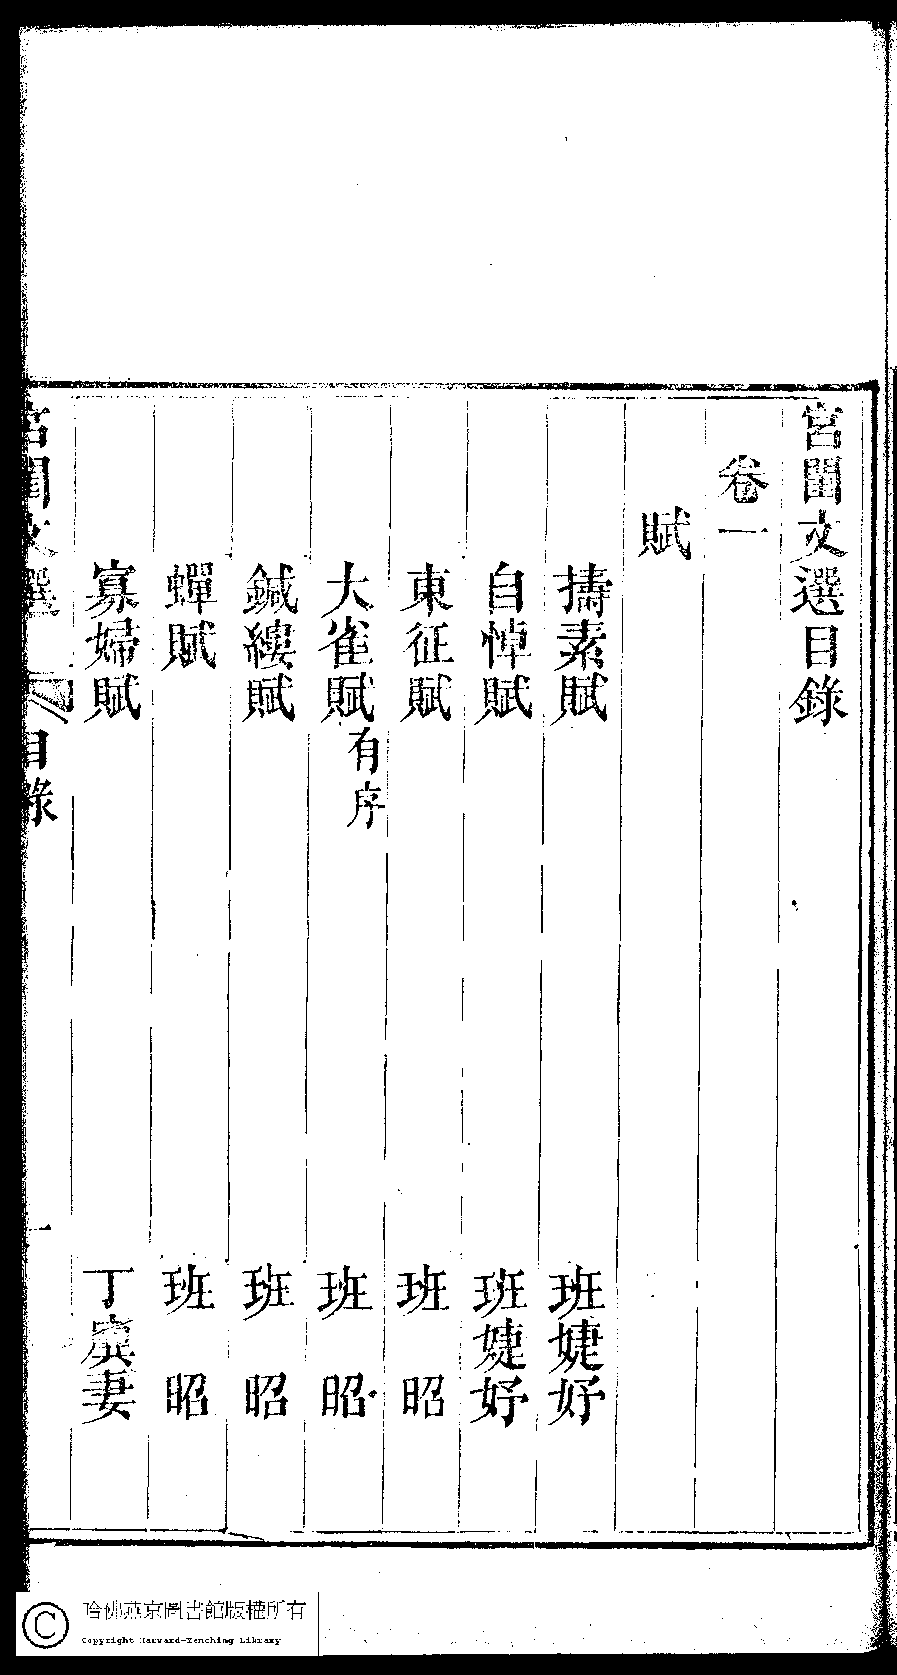 宮閨文選目錄
卷一
賦
擣素賦 班婕妤
自悼賦 班婕妤
東征賦 班昭
大雀賦 有序 班昭
鍼縷賦 班昭
蟬賦 班昭
寡婦賦 丁廙妻
宮閨文選 目錄 一
哈佛燕京圖書館版權所有
Copyright Harvard-Yenching Library